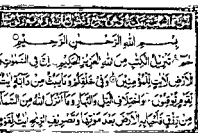 بِسْمِ اللهِ الرَّحْمٰنِ الرَّحِيْمِ
حٰمٓ تَنْزِيْلُ الْكِتٰبِ مِنَ اللهِ الْعَزِيْزِ الْحَكِيْمِ اِنَّ فِي السَّمٰوٰتِ وَ
الْاَرْضِ لَاٰيٰتٍ لِّلْمُؤْمِنِيْنَ وَفِيْ خَلْقِكُمْ وَمَا يَبُثُّ مِنْ دَآبَّةٍ اٰيٰتٌ
لِّقَوْمٍ يُّوْقِنُوْنَ وَاخْتِلَافِ الَّيْلِ وَالنَّهَارِ وَمَآ اَنْزَلَ اللهُ مِنَ السَّمَآءِ
مِنْ رِّزْقٍ فَاَحْيَا بِهِ الْاَرْضَ بَعْدَ مَوْتِهَا وَتَصْرِيْفِ الرِّيٰحِ اٰيٰتٌ لِّقَوْمٍ